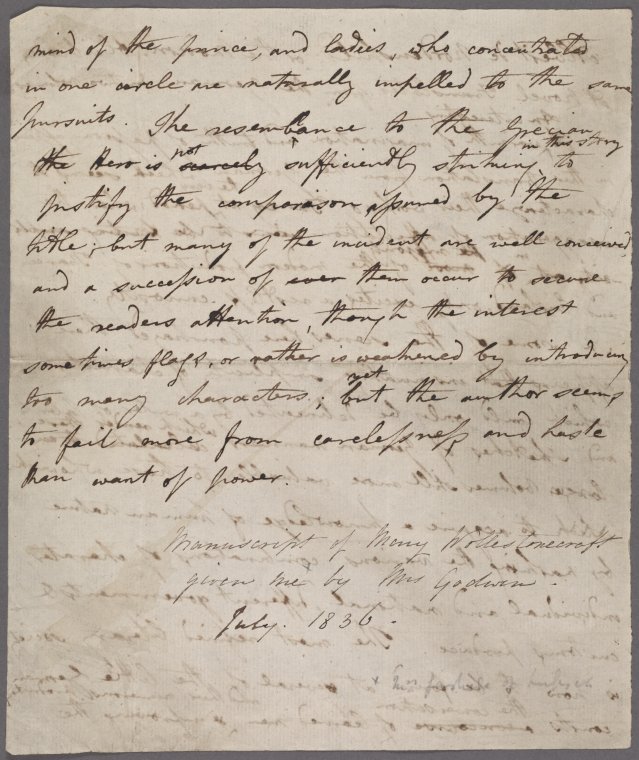 mind of the prince, and ladies, who concentrated
in one circle are naturally impelled to the same
pursuits. The resemblance to the Grecian
in this story
the Hero is not scarcely sufficiently striking, to
justify the comparison assumed by the
title; but many of the incident are well conceived,
and a succession of ever them occur to secure
the readers attention, though the interest
sometimes flags, or rather is weakened by introducing
too many characters; yet but the author seems
to fail more from carelessness, and haste
than want of power.
Manuscript of Mary Wollestonecraft
given me by Mrs Godwin.
July. 1836.